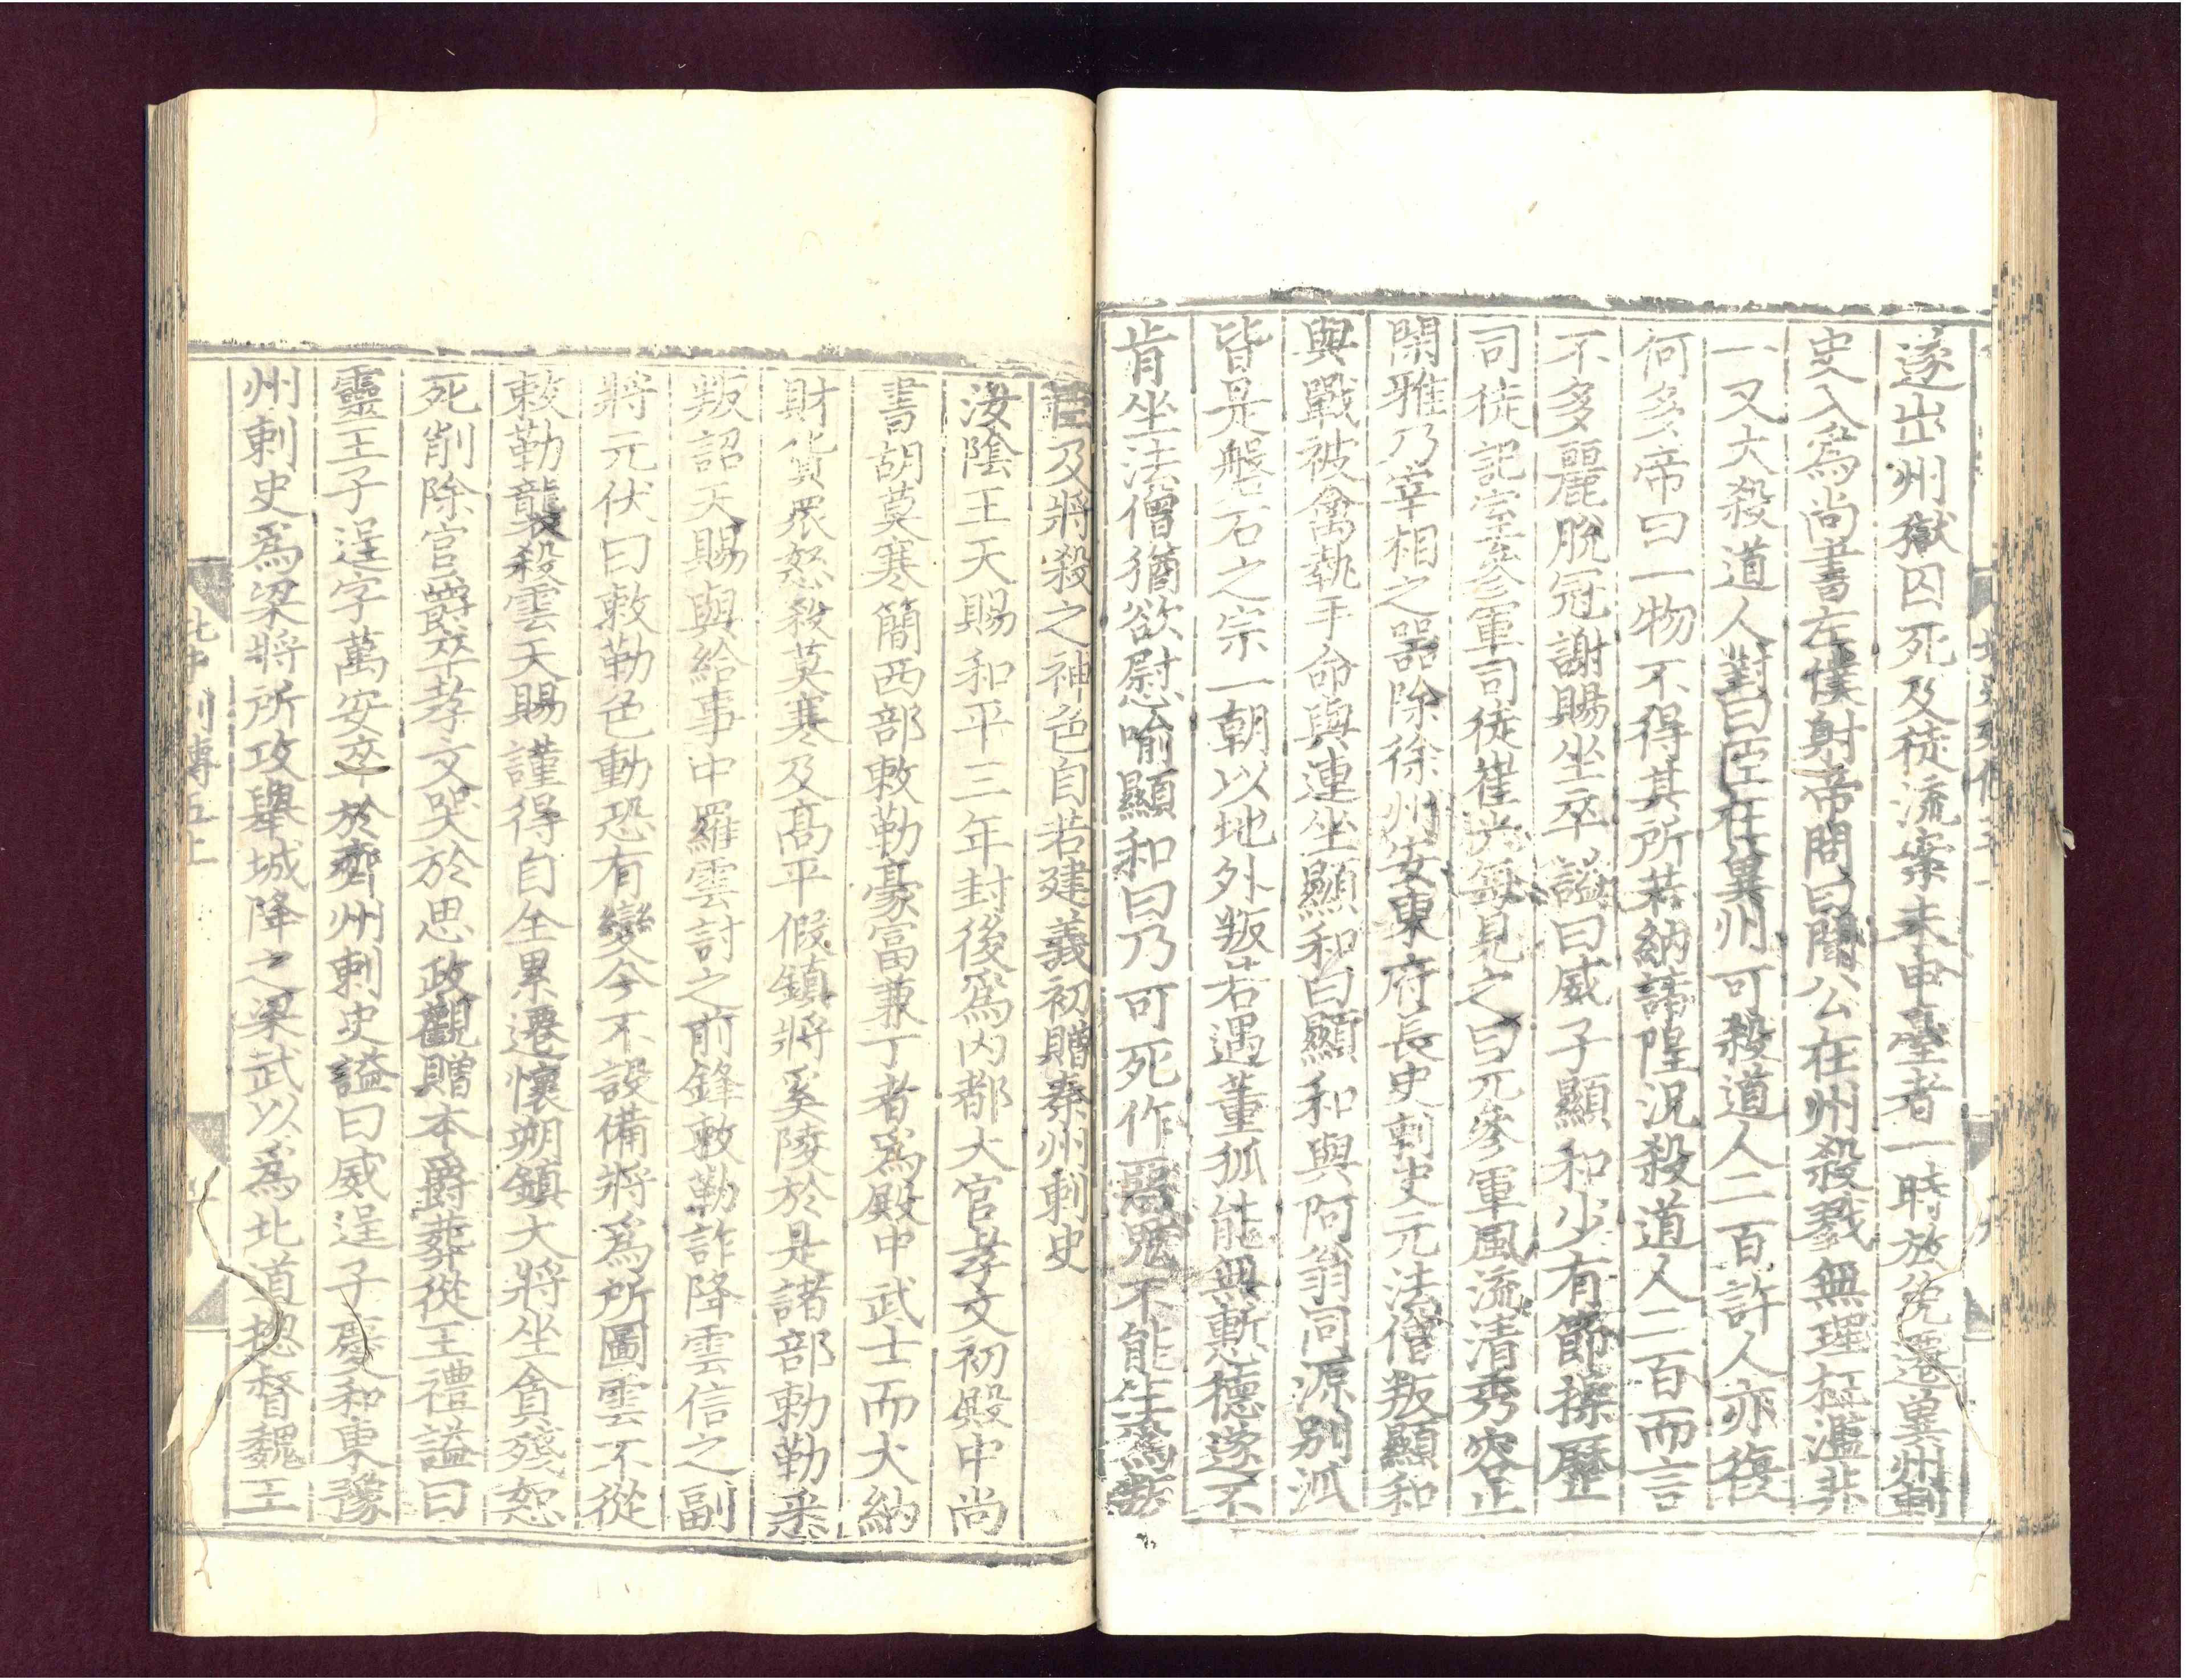 遂出州獄囚死及徒流案未申臺者一時放免遷兾州刺
史入爲尚書左僕射帝問曰聞公在州殺戮無理枉濫非
一又大殺道人對曰臣在兾州可殺道人二百許人亦復
何多帝曰一物不得其所若納諸隍況殺道人二百而言
不多麗脫冠謝賜坐卒謚曰威子顯和少有節操歷
司徒記室參軍司徒崔光每見之曰元參軍風流清秀容止
閑雅乃宰相之器除徐州安東府長史刺史元法僧叛顯和
與戰被禽執手命與連坐顯和曰顯和與阿翁同源別派
皆是盤石之宗一朝以地外叛若遇董狐能無慙德遂不
肯坐法僧猶欲慰喻顯和曰乃可死作惡鬼不能生爲叛
臣及將殺之神色自若建義初贈秦州刺史
汝陰王天賜和平三年封後爲內都大官孝文初殿中尚
書胡莫寒簡西部敕勒豪富兼丁者爲殿中武士而大納
財貨衆怒殺莫寒及高平假鎮將奚陵於是諸部勅勒悉
叛詔天賜與給事中羅雲討之前鋒敕勒詐降雲信之副
將元伏曰敕勒色動恐有變今不設備將爲所圖雲不從
敕勒襲殺雲天賜謹得自全累遷懷朔鎮大將坐貪殘恕
死削除官爵卒孝文哭於思政觀贈本爵葬從王禮謚曰
靈王子逞字萬安卒於齊州刺史謚曰威逞子慶和東豫
州刺史爲梁將所攻舉城降之梁武以爲北道摠督魏王
北史列傳五上